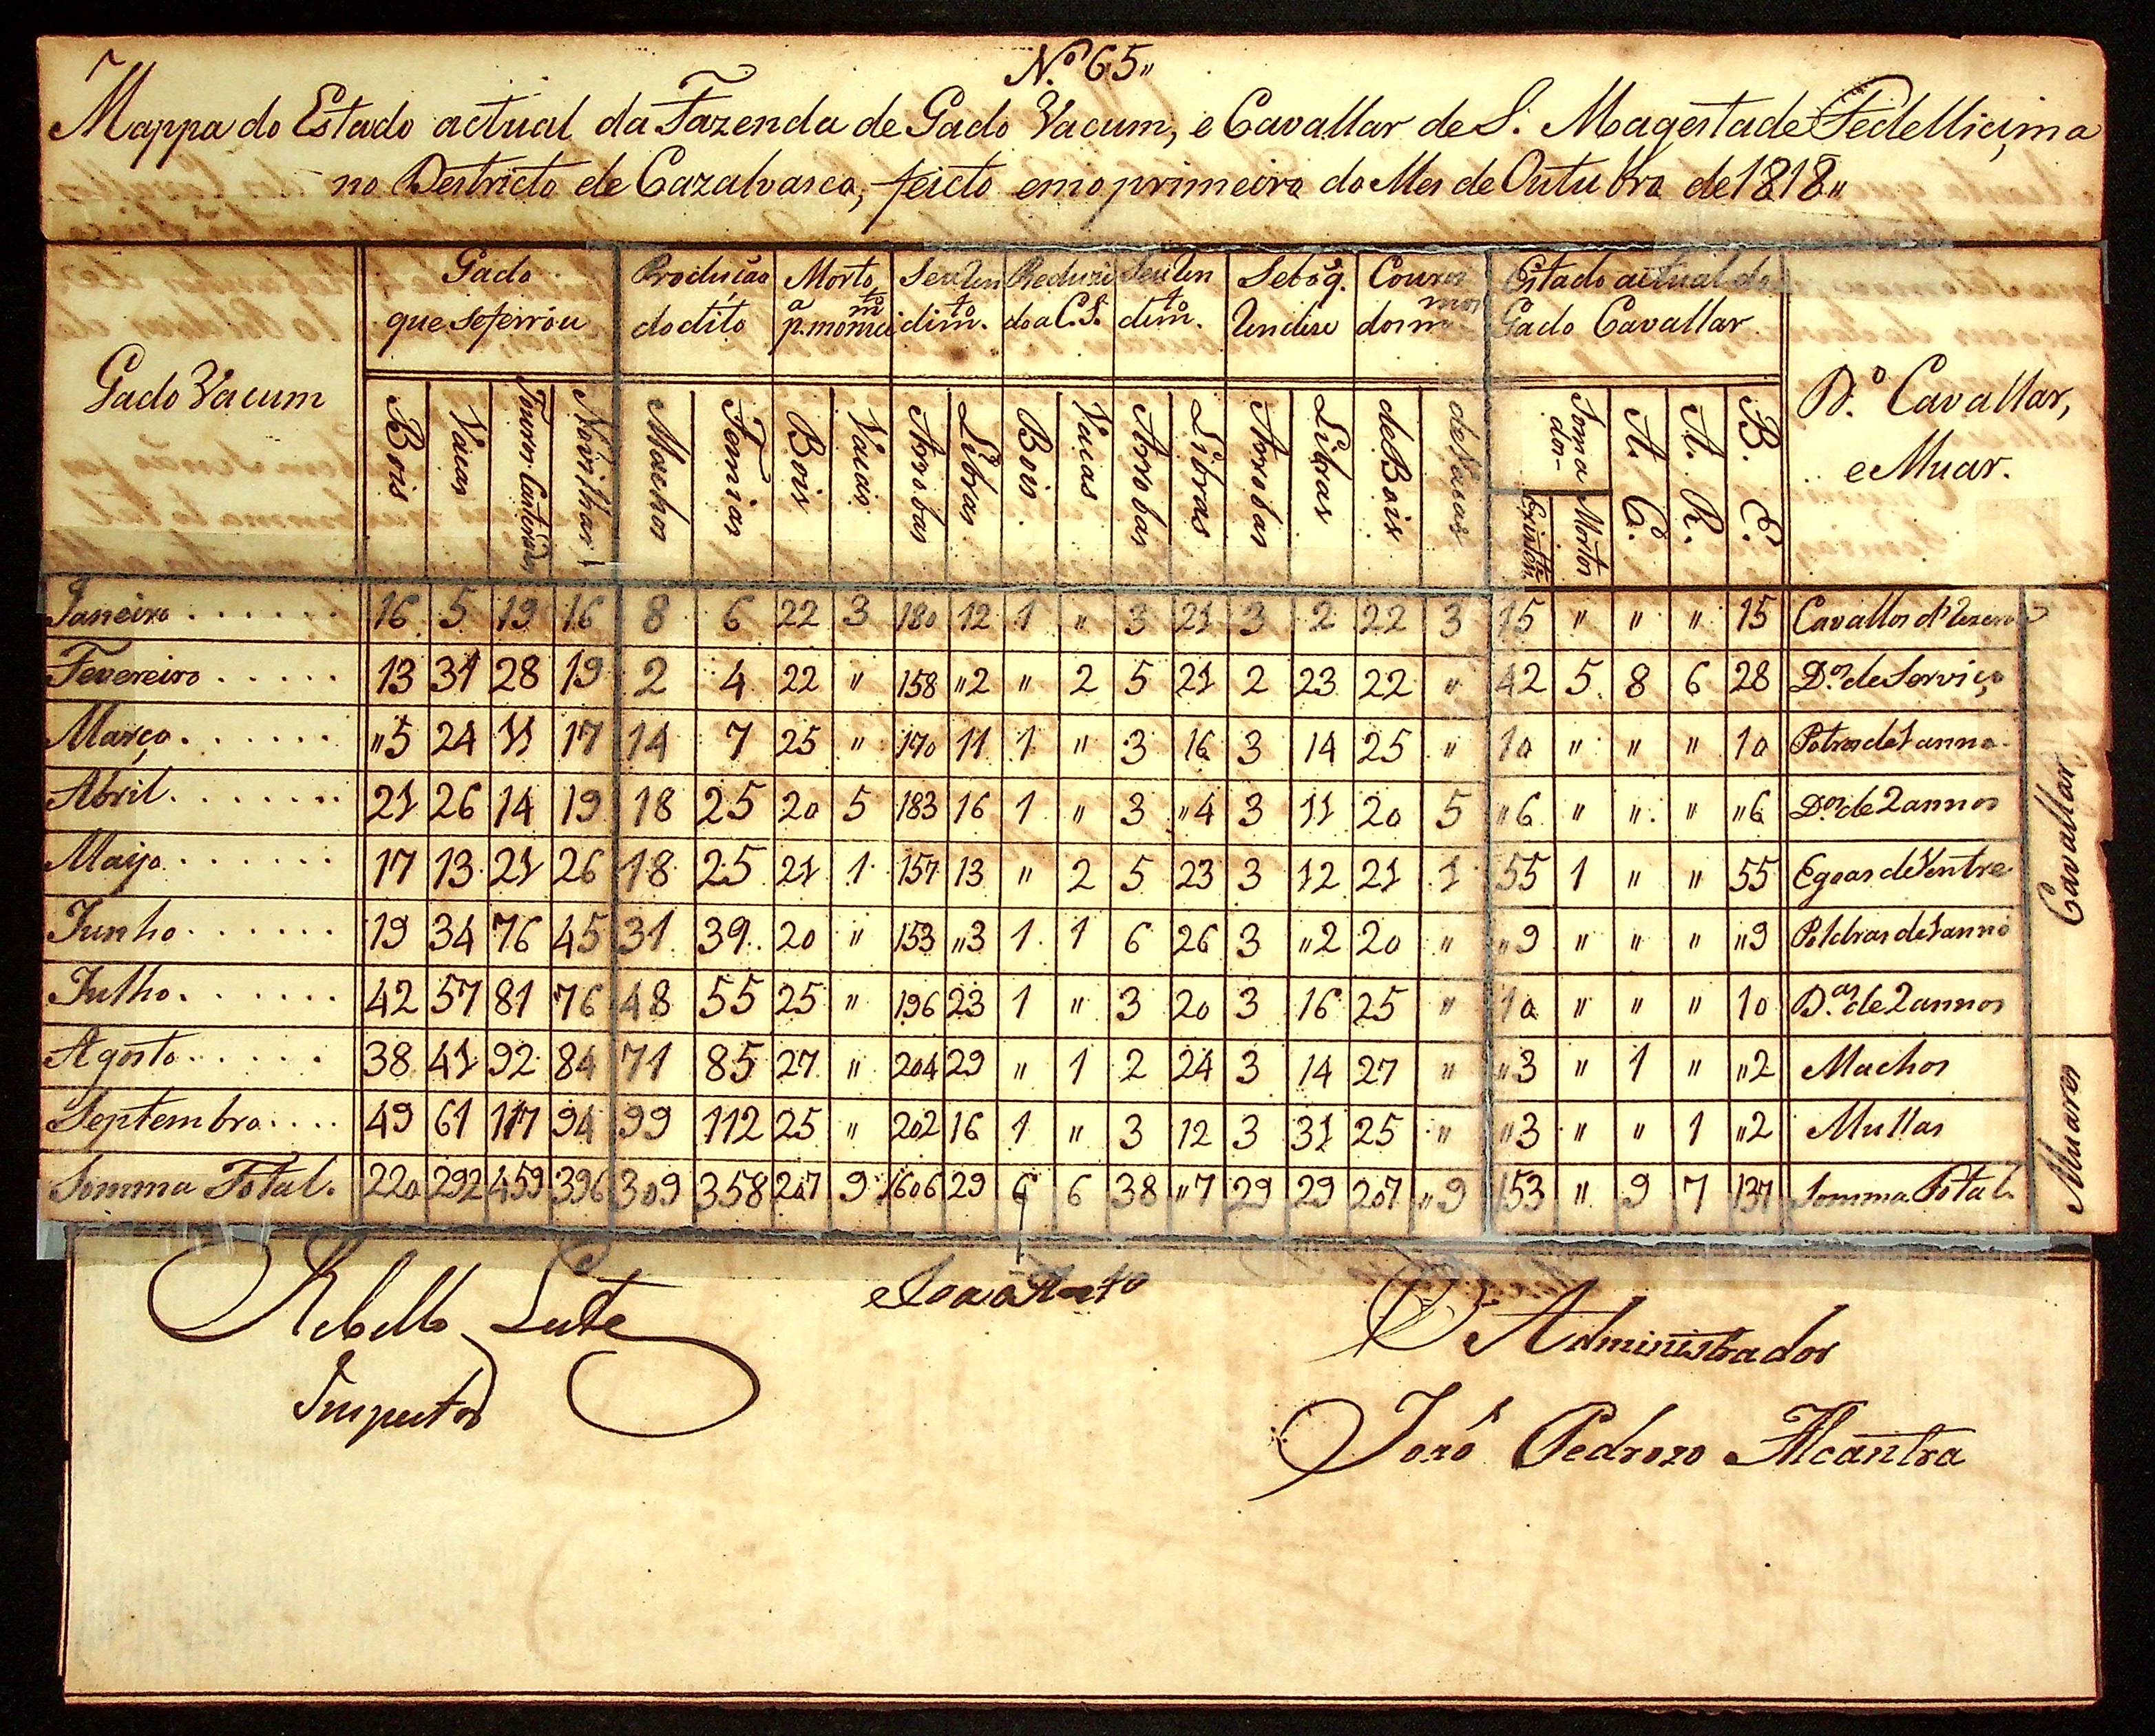 Nº 65"
Mappa do Estado actual da Fazenda de Gado Vacum, e Cavallar de S. Magestade Fedelliçima
no Destricto de Cazalvasco, feicto em o primeiro do Mes de Outubro de 1818"
Gado Vacum | Gado que se ferrou | Produção do dito | Morto pª monicim.to | Seu Rendim.to | Reduzidoa C.S. | Seu Rendim.to | Sebo q. Rendeu | Couros dos mor | Estado actual do Gado Cavallar | D.º Cavallar, e Muar.
Bois | Vacas | Touros Castrados | Novilhas | Machos | Femias | Bois | Vacas | Arrobas | Libras | Bois | Vacas | Arrobas | Libras | Arrobas | Libras | de Bois | de Vacas | Somados- Existente | Mortos | A. C. | A. R. | B. E.
Janeiro . . . . . . | 16 | 5 | 19 | 16 | 8 | 6 | 22 | 3 | 180 | 12 | 1 | " | 3 | 21 | 3 | 2 | 22 | 3 | 15 | " | " | " | 15 | Cavallos d'
Fevereiro . . . . . | 13 | 31 | 28 | 19 | 2 | 4 | 22 | " | 158 | "2 | " | 2 | 5 | 21 | 2 | 23 | 22 | " | 42 | 5 | 8 | 6 | 28 | D.os de Serviço
Março . . . . . . | "5 | 24 | 11 | 17 | 14 | 7 | 25 | " | 170 | 11 | 1 | " | 3 | 16 | 3 | 14 | 25 | " | 10 | " | " | " | 10 | Potros de 1 anno
Abril . . . . . . . | 21 | 26 | 14 | 19 | 18 | 25 | 20 | 5 | 183 | 16 | 1 | " | 3 | "4 | 3 | 11 | 20 | 5 | "6 | " | " | " | "6 | D.os de 2 annos
Maijo . . . . . . . | 17 | 13 | 21 | 26 | 18 | 25 | 21 | 1 | 157 | 13 | " | 2 | 5 | 23 | 3 | 12 | 21 | 1 | 55 | 1 | " | " | 55 | Egoas de Ventre
Junho . . . . . . | 19 | 34 | 76 | 45 | 31 | 39 | 20 | " | 153 | "3 | 1 | 1 | 6 | 26 | 3 | "2 | 20 | " | "9 | " | " | " | "9 | Poldras de 1 anno
Julho . . . . . . | 42 | 57 | 81 | 76 | 48 | 55 | 25 | " | 196 | 23 | 1 | " | 3 | 20 | 3 | 16 | 25 | " | 10 | " | " | " | 10 | D.as de 2 annos
Agosto . . . . . | 38 | 41 | 92 | 84 | 71 | 85 | 27 | " | 204 | 29 | " | 1 | 2 | 24 | 3 | 14 | 27 | " | "3 | " | 1 | " | "2 | Machos
Septembro . . . . | 49 | 61 | 117 | 94 | 99 | 112 | 25 | " | 202 | 16 | 1 | " | 3 | 12 | 3 | 31 | 25 | " | "3 | " | " | 1 | "2 | Mullas
Somma Total. | 220 | 292 | 459 | 396 | 309 | 358 | 207 | 9 | 1606 | 29 | 6 | 6 | 38 | "7 | 29 | 29 | 207 | "9 | 153 | " | 9 | 7 | 137 | Somma Total.
Cavallar
Muares
Rebello Leite
Inspector
O Administrador
José Pedrozo Alcantra